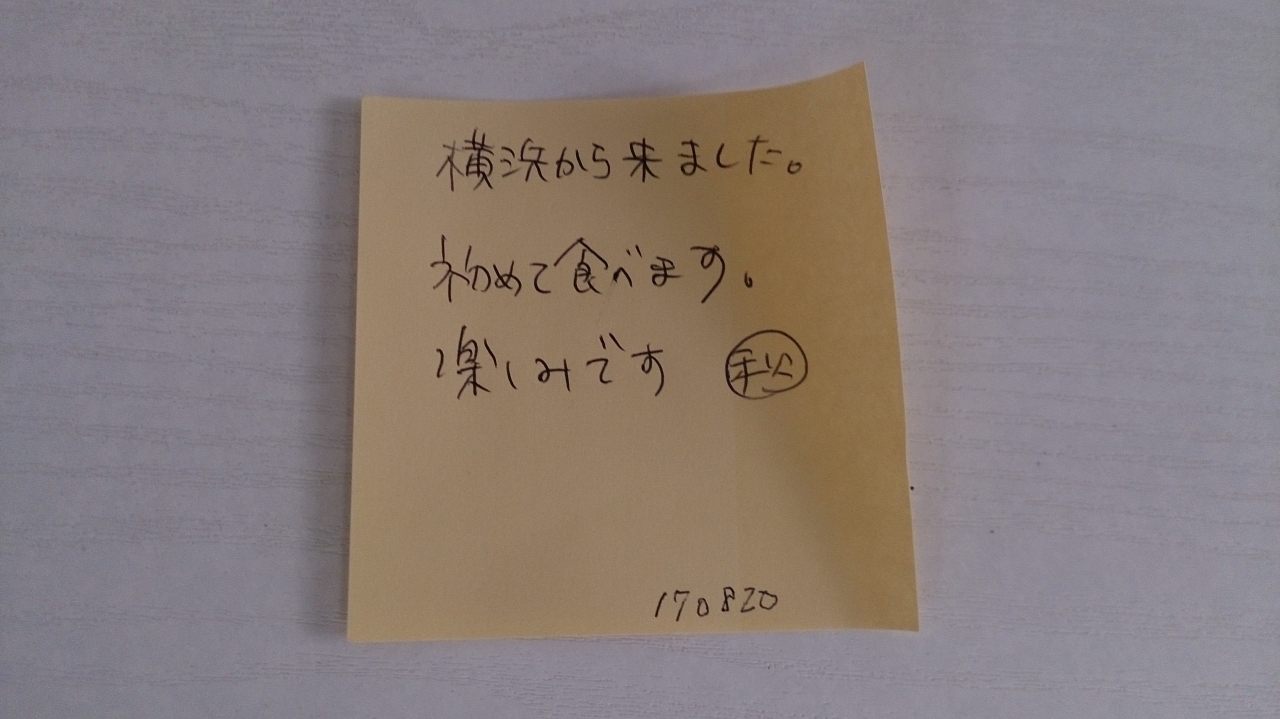 横浜から来ました。
初めて食べます。
楽しみです
170820